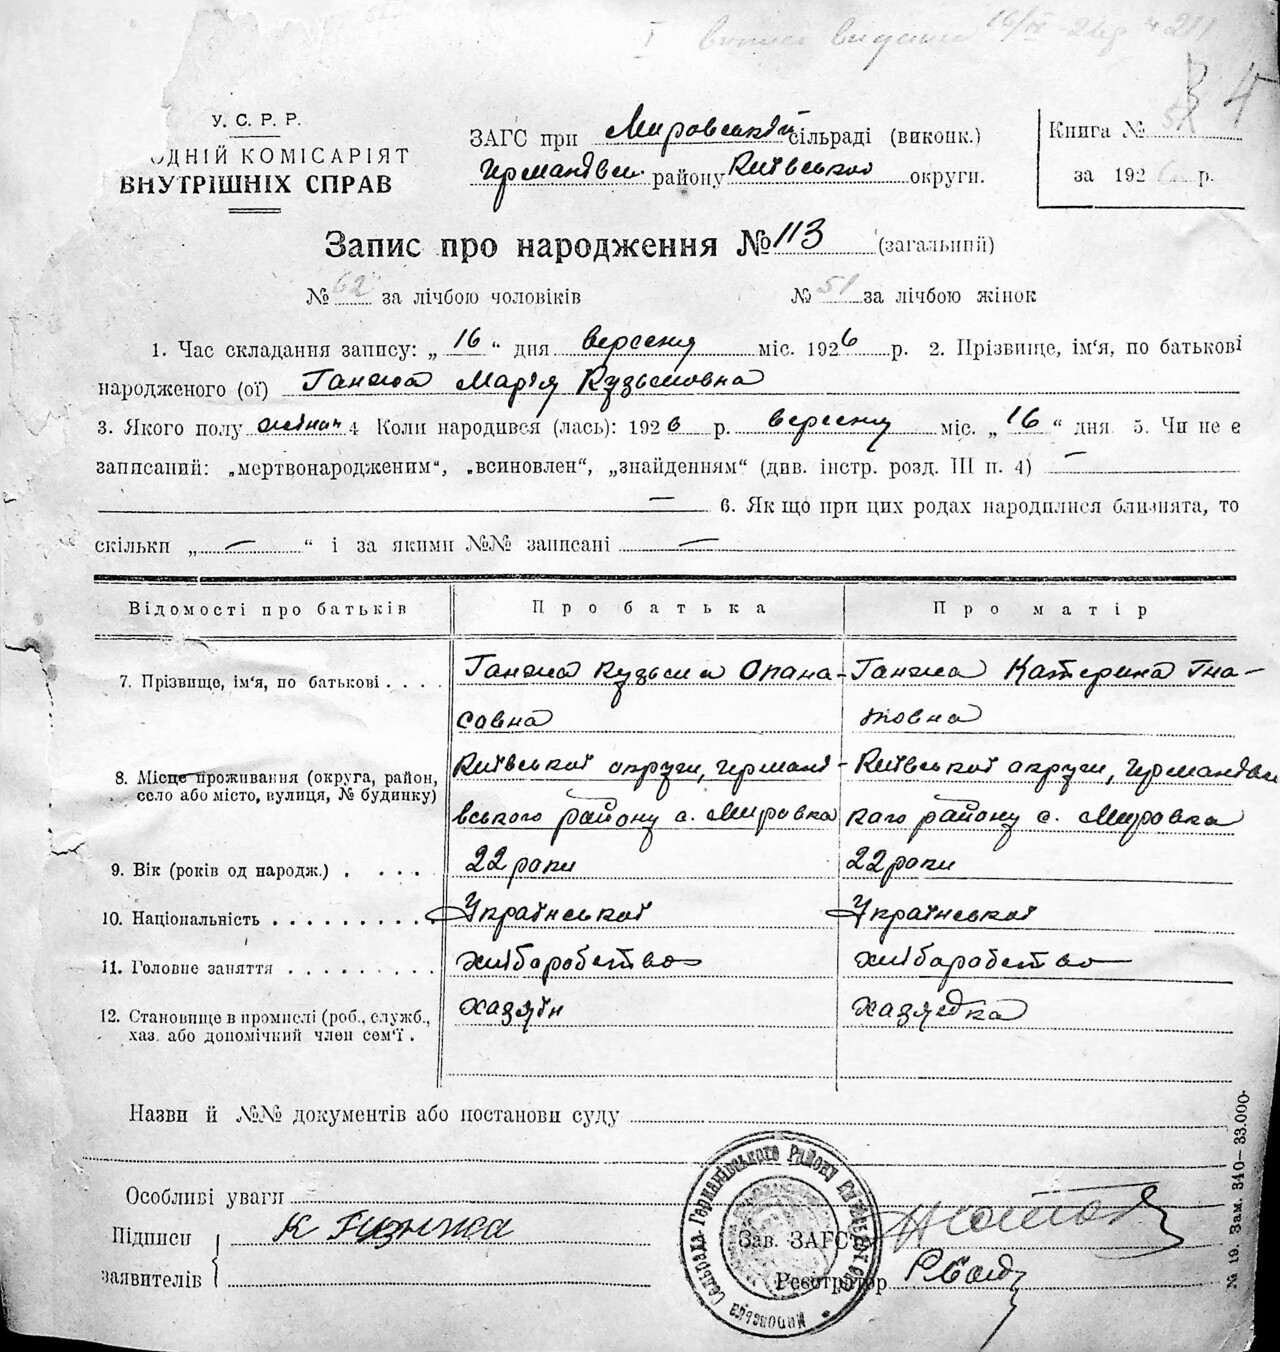 І випис видано 16/IX-26р № 211
4
У. С. Р. Р.
ОДНІЙ КОМІСАРІЯТ
ВНУТРІШНІХ СПРАВ
ЗАГС при Мировській сільраді (виконк.)
Германівськ. району Київської округи.
Книга №
за 1926 р.
Запис про народження № 113 (загальний)
№ 62 за лічбою чоловіків № 51 за лічбою жінок
1. Час складання запису: „16“ дня вересня міс. 1926 р. 2. Прізвище, ім'я, по батькові
народженого (ої) Ганжа Марія Кузьмовна
3. Якого полу жіноч 4 Коли народився (лась): 1926 р. вересня міс. „16“ дня 5. Чи не є
записаний: „мертвонародженим“, „всиновлен“, „знайденням“ (див. інстр. розд. III п. 4) —
— 6. Як що при цих родах народилися близнята, то
скільки „—“ і за якими №№ записані —
Відомості про батьків Про батька Про матір
7. Прізвище, ім'я, по батькові . . . . Ганжа Кузьма Опана- Ганжа Катерина Гна-
совна товна
8. Місце проживання (округа, район, село або місто, вулиця, № будинку) Київської округи, Германі- Київської округи, Германівсь
вського району с. Мировка кого району с. Мировка
9. Вік (років од народж.) . . . . . 22 роки 22 роки
10. Національність . . . . . . . . . Української Української
11. Головне заняття . . . . . . . . . хліборобство хліборобство
12. Становище в промислі (роб., служб., хазяїн хазяйка
хаз. або допомічний член сем'ї .
Назви й №№ документів або постанови суду
Особливі уваги
Підписи К Ганжа
заявителів
Зав. ЗАГС'у
Реєстратор
Мировська Сельрада Германівського Району Київської Окр
№ 19. Зам. 340—33.000.